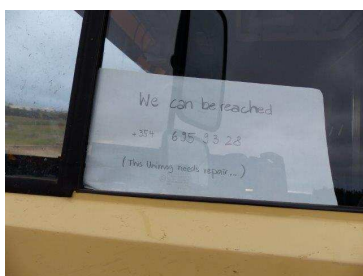 We can be reached
+354 695 33 28
(The Unimog needs repair...)